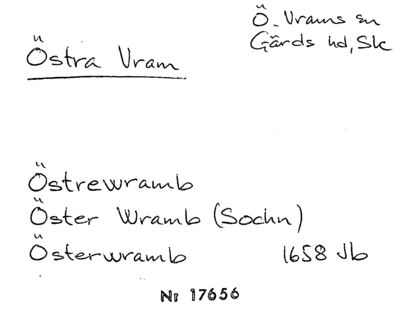 Ö. Vrams sn
Gärds hd, Sk
Östra Vram
Östrewramb
Öster Wramb (Sochn)
Österwramb 1658 Jb
Nr 17656